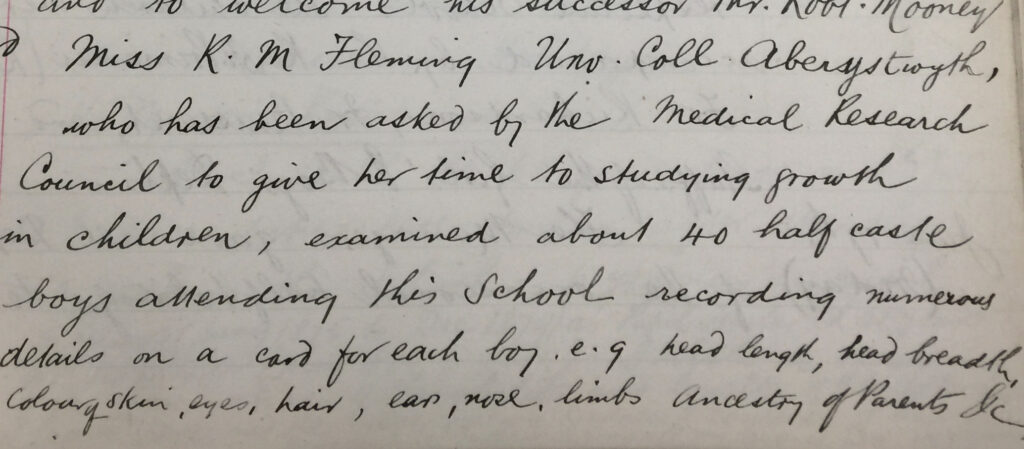 and to welcome his successor Mr. Robt. Mooney
Miss R. M Fleming Unv. Coll. Aberystwyth,
who has been asked by the Medical Research
Council to give her time to studying growth
in children, examined about 40 half caste
boys attending this School recording numerous
details on a card for each boy. e.g head length, head breadth,
Colour of skin, eyes, hair, ears, nose, limbs Ancestry of Parents &c